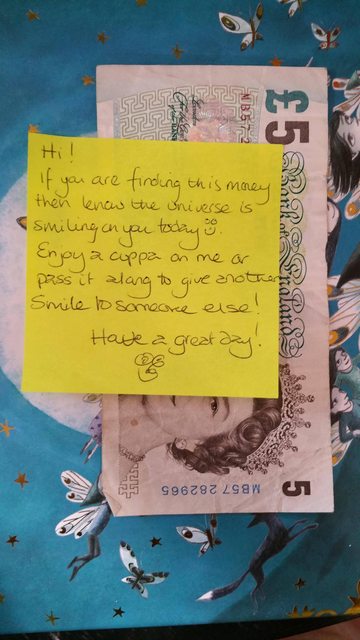 Hi!
If you are finding this money
then know the universe is
smiling on you today
Enjoy a cuppa on me or
pass it along to give another
Smile to someone else!
Have a great day!
£5
Bank of England
MB57 2
MB57 282965
5